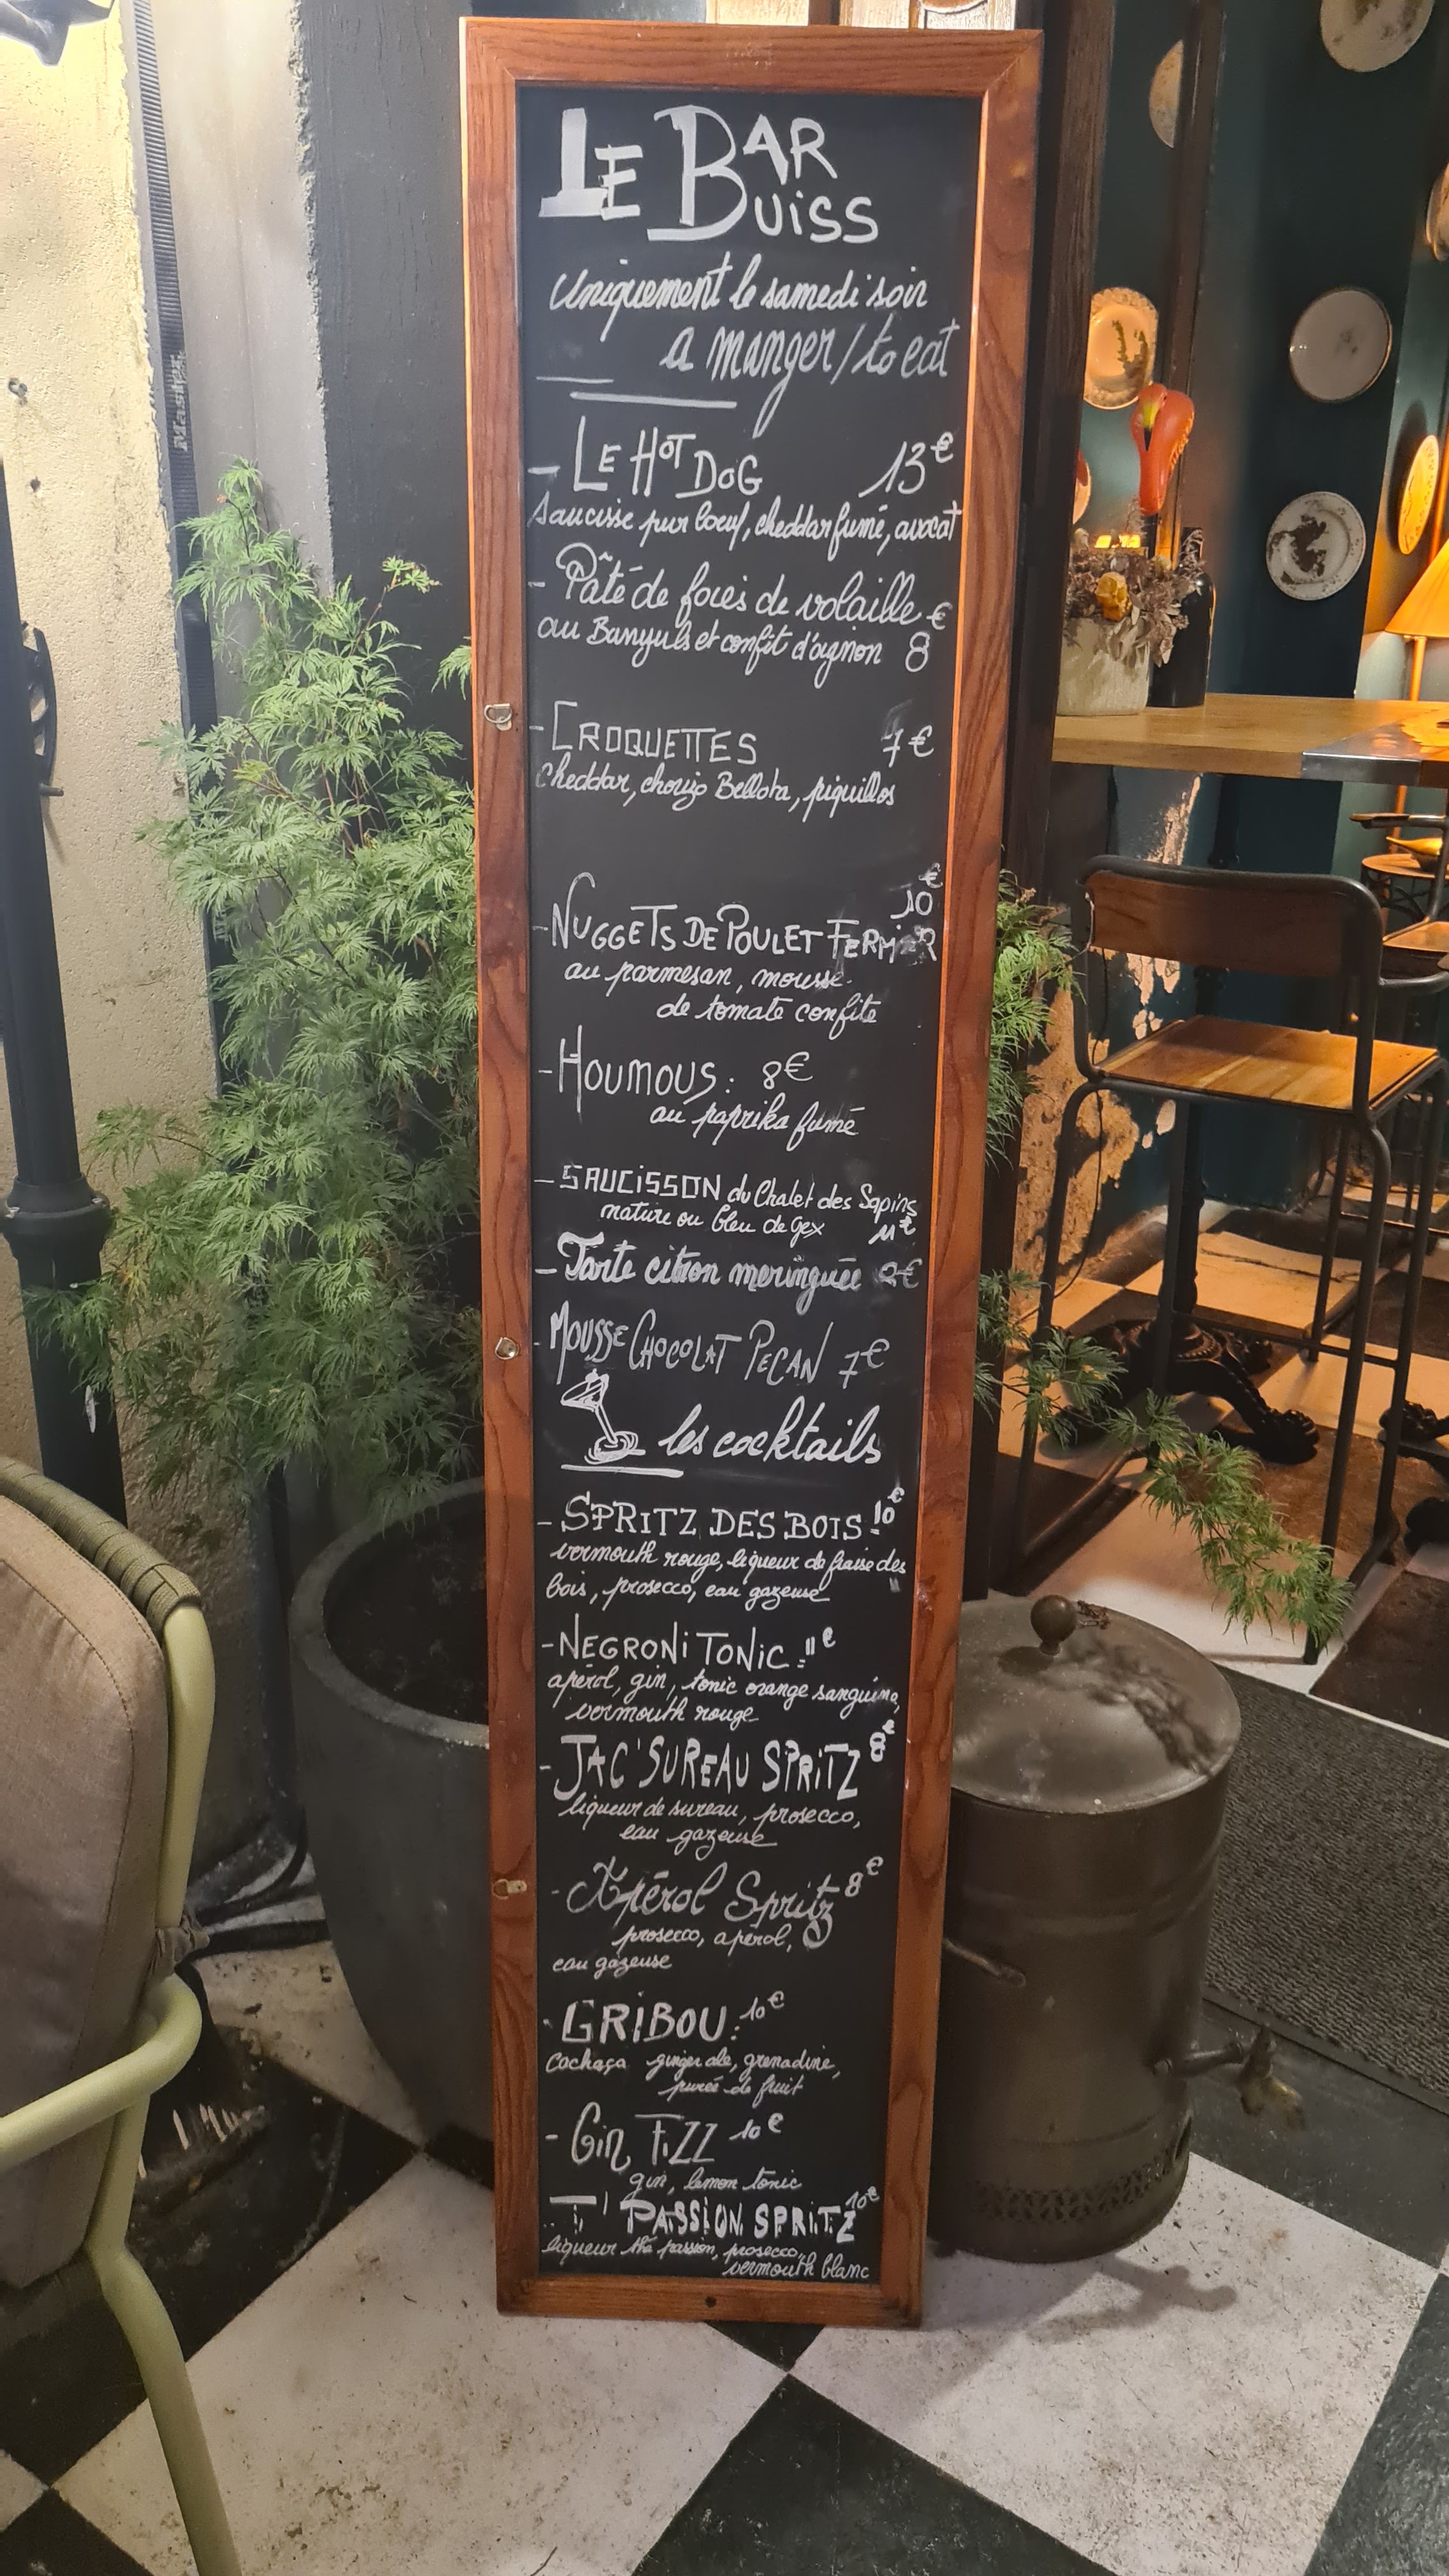 LE BAR
BUISS
Uniquement le samedi soir
a manger/to eat
- LE HOT DOG 13€
Saucisse pur boeuf, cheddar fumé, avocat
- Pâté de foies de volaille €
au Banyuls et confit d'oignon 8
- CROQUETTES 7€
cheddar, chorizo Bellota, piquillos
10€
- NUGGETS DE POULET FERMIER
au parmesan, mousse
de tomate confite
- HOUMOUS: 8€
au paprika fumé
- SAUCISSON du Chalet des Sapins
nature ou bleu de Gex 11€
- Tarte citron meringuée €
- MOUSSE CHOCOLAT PECAN 7€
les cocktails
- SPRITZ DES BOIS: 10€
vermouth rouge, liqueur de fraise des
bois, prosecco, eau gazeuse
- NEGRONI TONIC: 11€
apérol, gin, tonic orange sanguine,
vermouth rouge
- JAC'SUREAU SPRITZ 8€
liqueur de sureau, prosecco,
eau gazeuse
- Apérol Spritz 8€
prosecco, apérol,
eau gazeuse
- GRIBOU: 10€
Cachaça ginger ale, grenadine,
purée de fruit
- Gin FIZZ 10€
gin, lemon tonic
- T' PASSION SPRITZ 10€
liqueur thé passion, prosecco,
vermouth blanc
Master